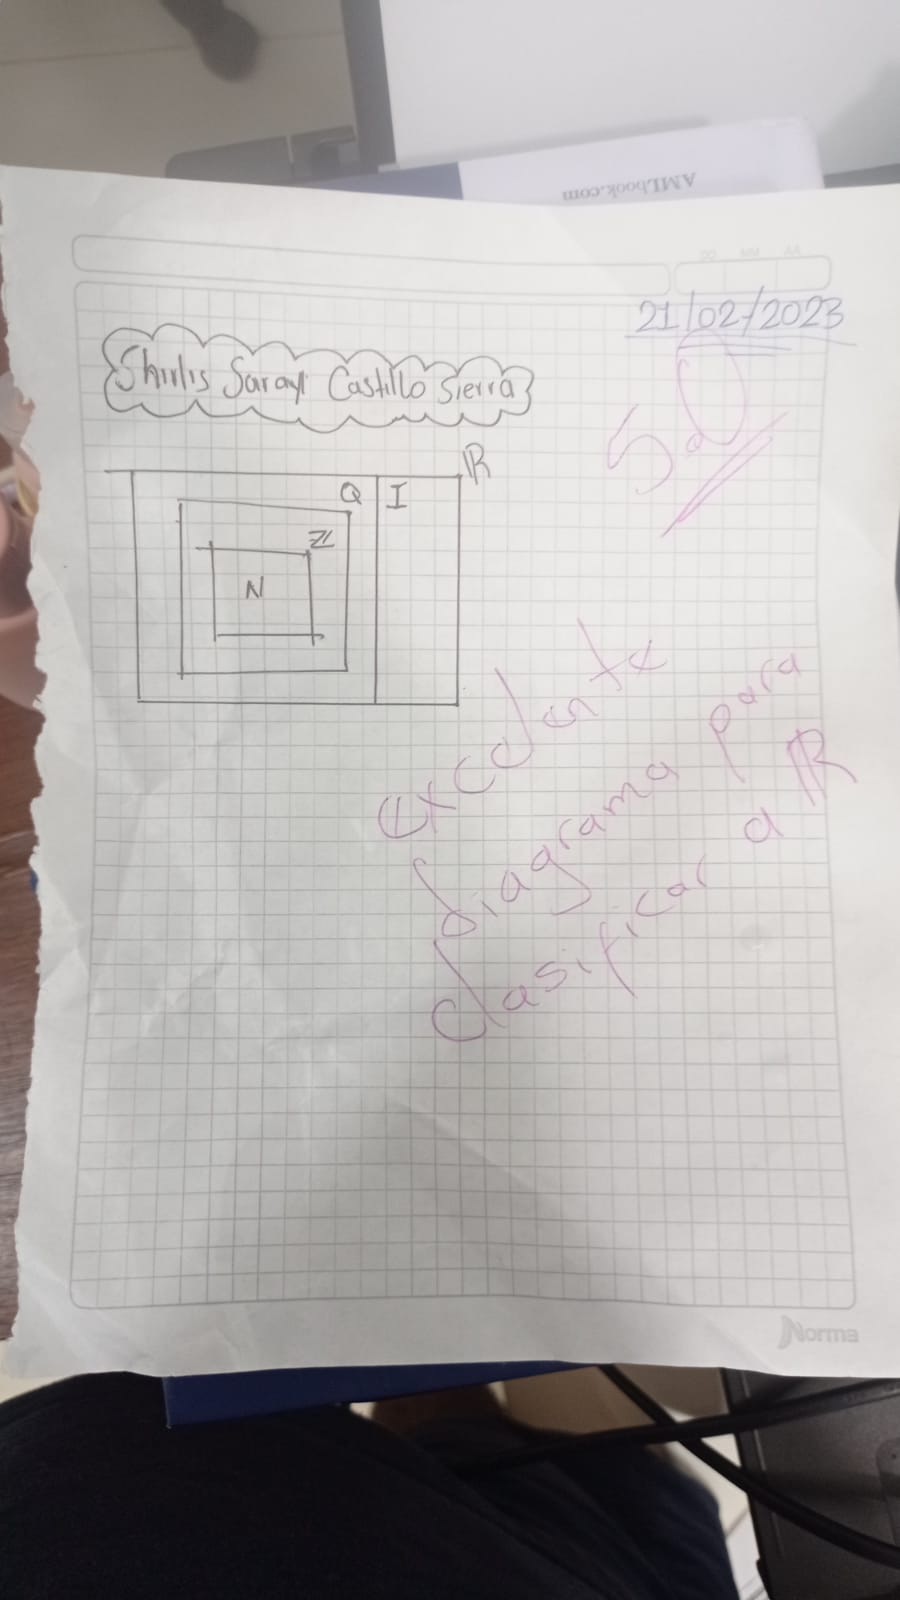 AMLbook.com
DD MM AA
21/02/2023
Shirlis Saray Castillo Sierra
5.0
R
Q I
Z
N
Excelente
diagrama para
clasificar a R
Norma